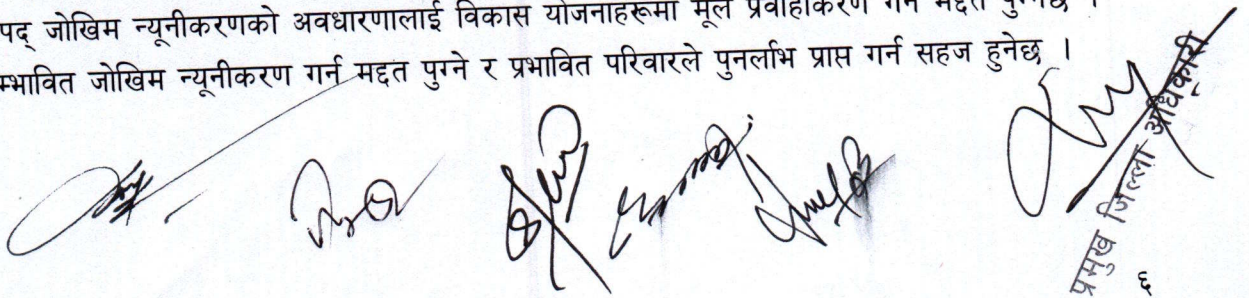 पद् जोखिम न्यूनीकरणको अवधारणालाई विकास योजनाहरूमा मूल प्रवाहीकरण गर्न मद्दत पुग्नेछ ।
म्भावित जोखिम न्यूनीकरण गर्न मद्दत पुग्ने र प्रभावित परिवारले पुनर्लाभ प्राप्त गर्न सहज हुनेछ ।
प्रमुख जिल्ला अधिकारी
६